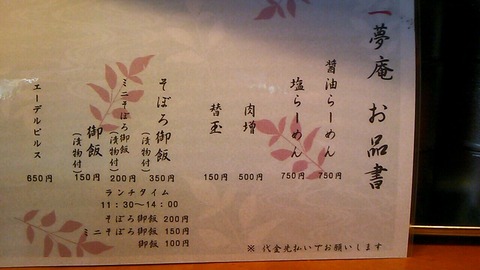 一夢庵 お品書
醤油らーめん 750円
塩らーめん 750円
肉増 500円
替玉 150円
そぼろ御飯 (漬物付) 350円
ミニそぼろ御飯 (漬物付) 200円
御飯 (漬物付) 150円
エーデルピルス 650円
ランチタイム
11:30~14:00
そぼろ御飯 200円
ミニそぼろ御飯 150円
御飯 100円
※ 代金先払いでお願いします